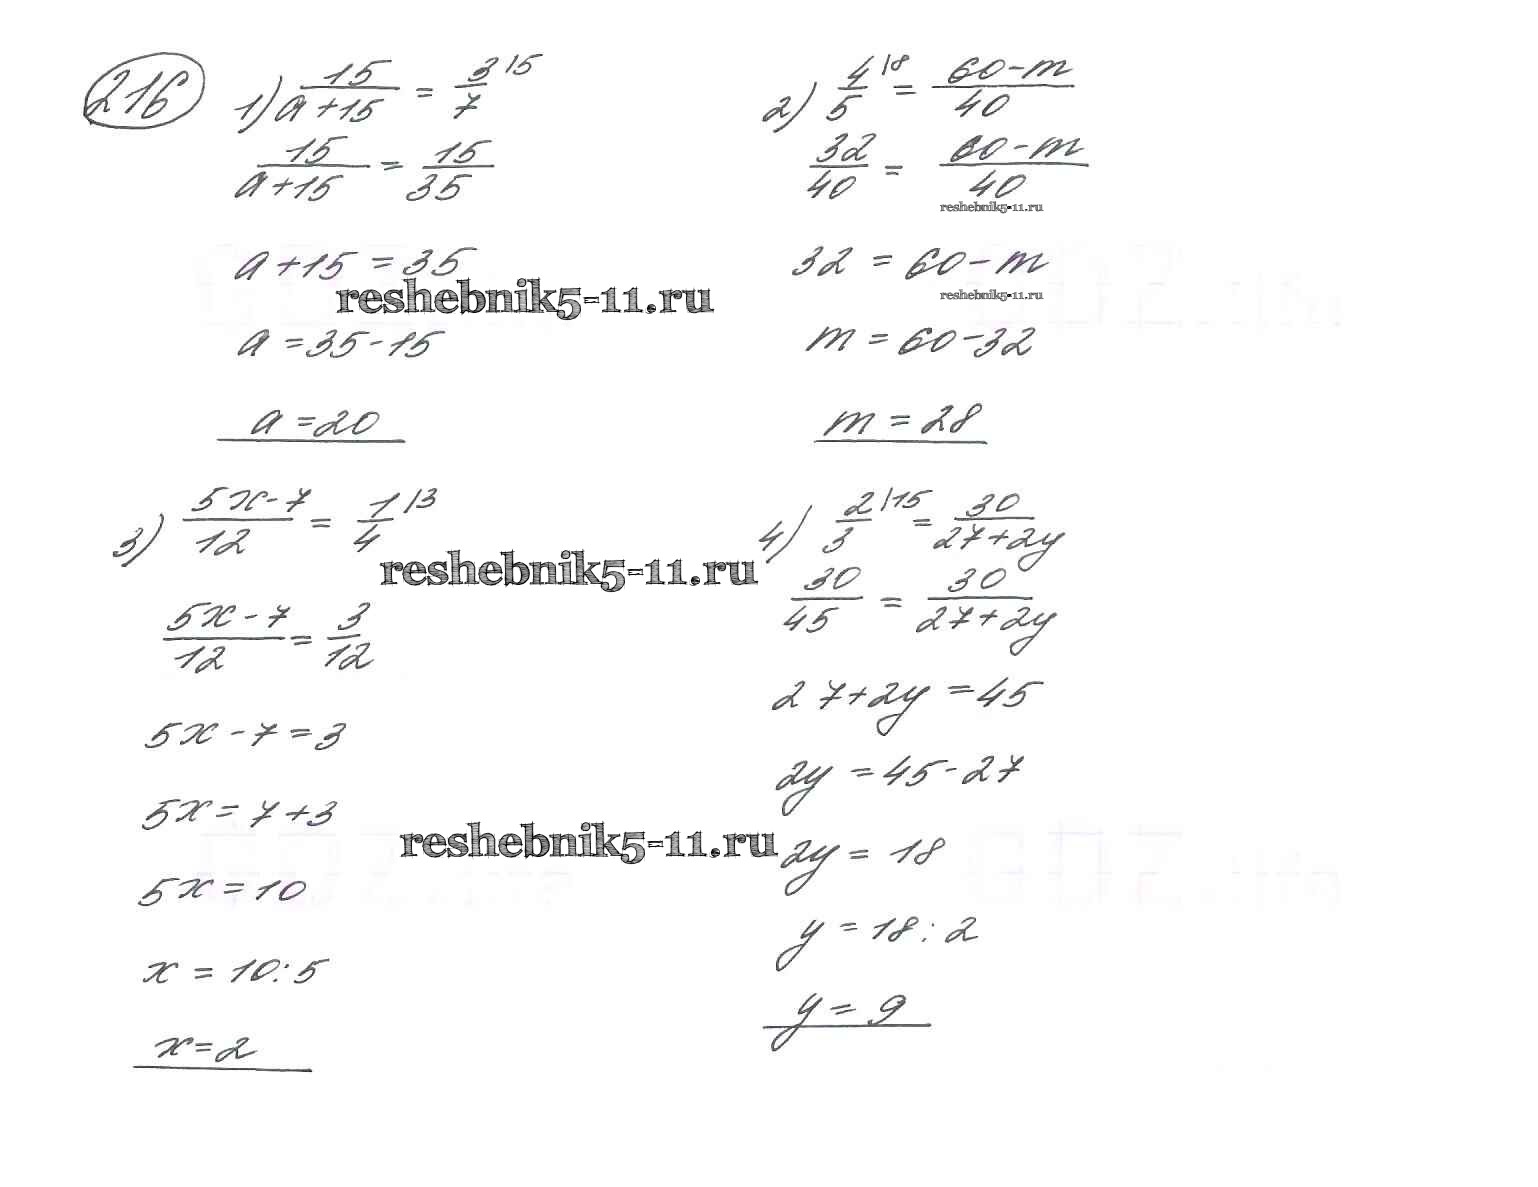 216
1) 15/(a+15) = 3/7 |5
15/(a+15) = 15/35
a+15 = 35
reshebnik5-11.ru
a = 35-15
a = 20
2) 4/5 |8 = (60-m)/40
32/40 = (60-m)/40
reshebnik5-11.ru
32 = 60-m
reshebnik5-11.ru
m = 60-32
m = 28
3) (5x-7)/12 = 1/4 |3
reshebnik5-11.ru
(5x-7)/12 = 3/12
5x-7=3
5x=7+3
reshebnik5-11.ru
5x=10
x = 10:5
x=2
4) 2/3 |15 = 30/(27+2y)
30/45 = 30/(27+2y)
27+2y = 45
2y = 45-27
2y = 18
y = 18:2
y = 9